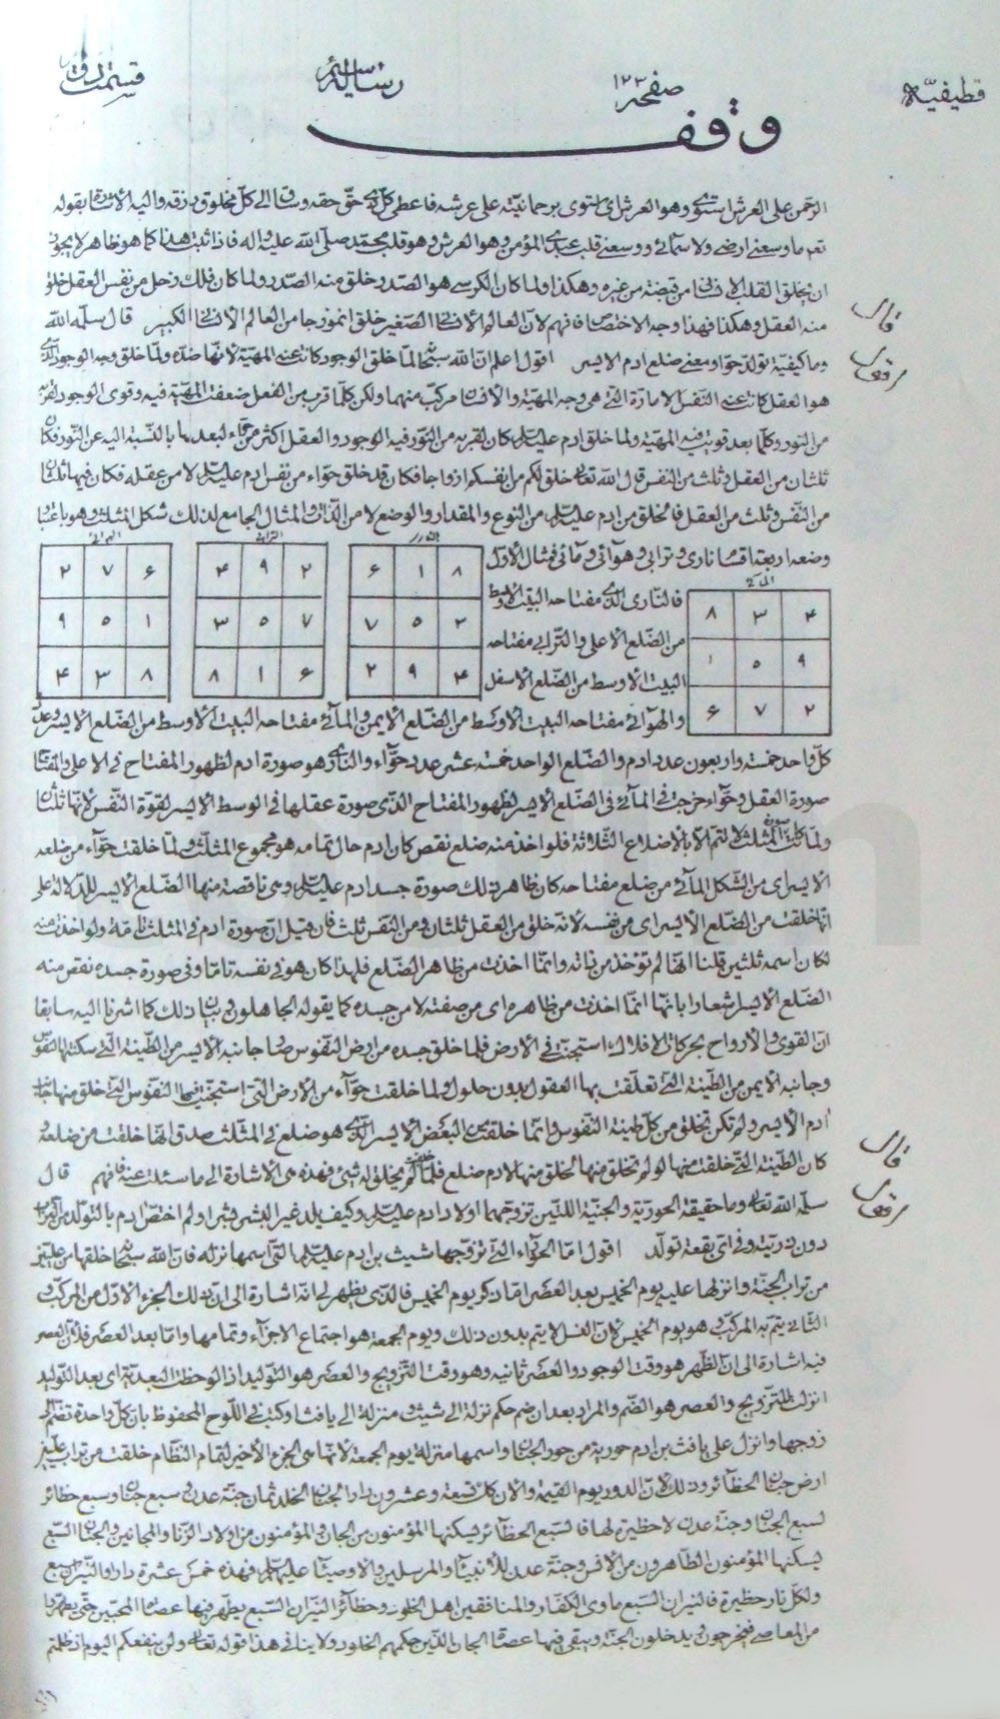 قطيفيّة صفحه ١٢٣ رساله قسمت
وقف
الرحمن على العرش استوى وهو العرش اى استوى برحمانيّته على عرشه فاعطى كلّ ذى حقّ حقه وساق الى كلّ مخلوق رزقه واليه الاشارة بقوله
تعالى ما وسعنى ارضى ولا سمائى ووسعنى قلب عبدى المؤمن وهو العرش وهو قلب محمّد صلّى الله عليه واله فاذا ثبت هذا كما هو ظاهر لا يجوز
ان يخلق القلب الانسانى من قبضة من غيره وهكذا ولما كان الكرسى هو الصدر خلق منه الصّدر ولما كان فلك زحل من نفس العقل خلق
منه العقل وهكذا فهذا وجه الاختصاص فافهم لانّ العالم الانسانى الصغير خلق انموذجا من العالم الانسانى الكبير قال سلّمه الله
قال
وما كيفيّة تولد حوّاء ومعنى ضلع ادم الايسر اقول اعلم انّ الله سبحانه لمّا خلق الوجود كانت عنه المهيّة لانها ضدّه ولمّا خلق وجه الوجود الذى
هو العقل كانت عنه النّفس الامارة الّتى هى وجه المهيّة والانسان مركّب منهما ولكن كلّما قرب من الفعل ضعفت المهيّة فيه وقوى الوجود لقربه
من النور وكلّما بعد قويت فيه المهيّة ولما خلق ادم عليه السّلم كان لقربه من النّور فيه الوجود والعقل اكثر من حوّاء لبعدها بالنّسبة اليه عن النّور فكان
ثلثان من العقل وثلث من النفس قال الله تعالى خلق لكم من انفسكم ازواجا فكان قد خلق حوّاء من نفس ادم عليه السّلم لا من عقله فكان فيها ثلثان
من النّفس وثلث من العقل فالمخلق من ادم عليه السّلم من النوع والمقدار والوضع لا من الذّات والمثال الجامع لذلك شكل المثلث وهو باعتبار
وضعه اربعة اقسام نارى وترابى وهوائى ومائى فمثال الاوّل
الهوائى الترابى النارى المائى
٦ ٧ ٢
١ ٥ ٩
٨ ٣ ٤
٢ ٩ ٤
٧ ٥ ٣
٦ ١ ٨
٨ ١ ٦
٣ ٥ ٧
٤ ٩ ٢
٤ ٣ ٨
٩ ٥ ١
٢ ٧ ٦
فالنّارى الذى مفتاحه البيت الاوسط
من الضّلع الاعلى والتّرابى مفتاحه
البيت الاوسط من الضّلع الاسفل
والهوائى مفتاحه البيت الاوسط من الضّلع الايمن والمائى مفتاحه البيت الاوسط من الضّلع الايسر وعدد
كلّ واحد خمسة واربعون عدد ادم والضّلع الواحد خمسة عشر عدد حوّاء والنّارى هو صورة ادم لظهور المفتاح فى الاعلى والمفتاح
صورة العقل وحوّاء خرجت فى المائى فى الضّلع الايسر لظهور المفتاح الذى صورة عقلها فى الوسط الايسر لقوة النّفس لانّها ثلثان
ولمّا كان المثلث لا تتم الّا بالاضلاع الثّلاثة فلو اخذ منه ضلع نقص كان ادم حال تمامه هو مجموع المثلث ولمّا خلقت حوّاء من ضلعه
الايسر اى من الشّكل المائى من ضلع مفتاحه كان ظاهر ذلك صورة جسد ادم عليه السّلم وهى ناقصة منها الضّلع الايسر للدّلالة على
انّها خلقت من الضّلع الايسر اى من نفسه لانّه خلق من العقل ثلثان ومن النّفس ثلث فان قيل انّ صورة ادم فى المثلث تامّة ولو اخذت منه
لكان اسمه ثلثين قلنا انّها لم تؤخذ من ذاته وانّما اخذت من ظاهر الضّلع فلهذا كان هو فى نفسه تامّا وفى صورة جسده نقص منه
الضّلع الايسر اشعارا بانّها انّما اخذت من ظاهره اى من صفته لا من جسده كما يقوله الجاهلون وبيان ذلك كما اشرنا اليه سابقا
انّ القوى والارواح بحركات الافلاك استجنّت فى الارض فلما خلق جسده من ارض النّفوس جانبه الايسر من الطّينة الّتى سكنتها النّفوس
وجانبه الايمن من الطّينة الّتى تعلّقت بها العقول بدون حلول ولما خلقت حوّاء من الارض الّتى استجنّت فيها النفوس الّتى خلق منها جانب
ادم الايسر ولم تكن تخلق من كلّ طينة النّفوس وانّما خلقت من البعض الايسر الّذى هو ضلع فى المثلث صدق انّها خلقت من ضلعه و
كان الطّينة الّتى خلقت منها لو لم تخلق منها لخلق منها لادم ضلع فلمّا لم يخلق له شئ فهذه هى الاشارة الى ما سئلت عنه فافهم قال
قال
سلّمه الله تعالى وما حقيقة الحوريّة والجنيّة اللتين تزوّجهما اولاد ادم عليه السّلم وكيف يلد غير البشر بشرا ولم اختصّ ادم بالتولّد من التراب
دون ذريّته وفى اى بقعة تولّد اقول امّا الحوراء الّتى تزوّجها شيث بن ادم عليه السّلم الّتى اسمها نزلة فانّ الله سبحانه خلقها من
من تراب الجنّة وانزلها عليه يوم الخميس بعد العصر امّا ذكر يوم الخميس فالّذى يظهر لى انّه اشارة الى انّ ذلك الجزء الاوّل من المركّب و
الثّانى يتم به المركّب وهو يوم الخميس لانّ النسل لا يتم بدون ذلك ويوم الجمعة هو اجتماع الاجزاء وتمامها وامّا بعد العصر فلانّ العصر
فيه اشارة الى انّ الظّهر هو وقت الوجود والعصر ثانيه وهو وقت التّزويج والعصر هو التّوليد اذا لوحظت البعديّة اى بعد التّوليد
انزلت للتّزويج والعصر هو الضّم والمراد بعد ان ضم حكم نزلة الى شيث ومنزلة الى يافث وكتب فى اللّوح المحفوظ بان كلّ واحدة تضم الى
زوجها وانزل على يافث بن ادم حورية من حور الجنان واسمها منزلة يوم الجمعة لانّها هى الجزء الأخير لتمام النّظام خلقت من تراب
ارض جنان الحظائر وذلك لانّ الدور يوم القيمة والان كلّ تسعة وعشرون دارا الجنان الخلد ثمان جنّة عدن وسبع جنان وسبع حظائر
لسبع الجنان وجنّة عدن لا حظيرة لها فالسّبع الحظائر يسكنها المؤمنون من الجان والمؤمنون من اولاد الزّنا والمجانين والجنان السّبع
يسكنها المؤمنون الطّاهرون من الانس وجنّة عدن للأنبيآء والمرسلين والاوصيآء عليهم السّلم فهذه خمس عشرة دارا والنّيران سبع
ولكلّ نار حظيرة فالنيران السّبع ماوى الكفّار والمنافقين اهل الخلود وحظائر النّيران السّبع يطهر فيها عصاة المحبّين حتّى يطهروا
من المعاصى فيخرجون ويدخلون الجنّة ويبقى فيها عصاة الجان الّذين حكمهم الخلود ولا ينافى هذا قوله تعالى ولن ينفعكم اليوم اذ ظلمتم